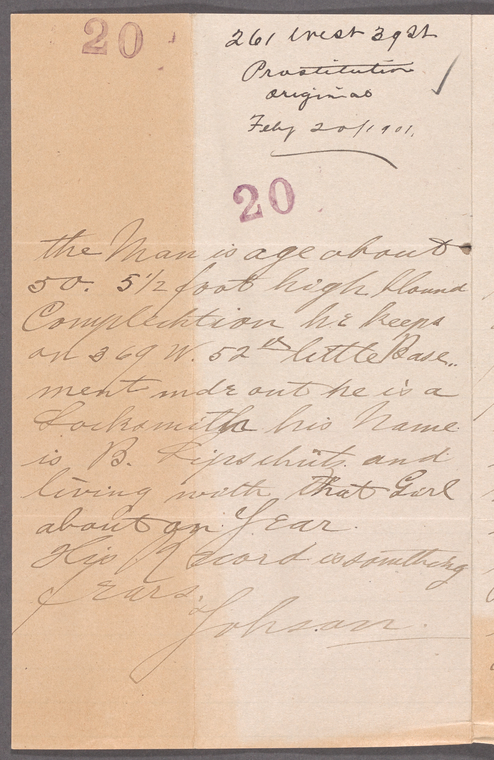 20
261 West 39 St
Prostitution
Original
Feby 20/1901.
20
the Man is age about
50. 5 1/2 foot high blound
Complecktion he keeps
on 369 W. 52th little Base..
ment out he is a
Locksmith his Name
is B. Lipschutz and
living with that Girl
about on Year.
His Record is something
fears.
Johson.